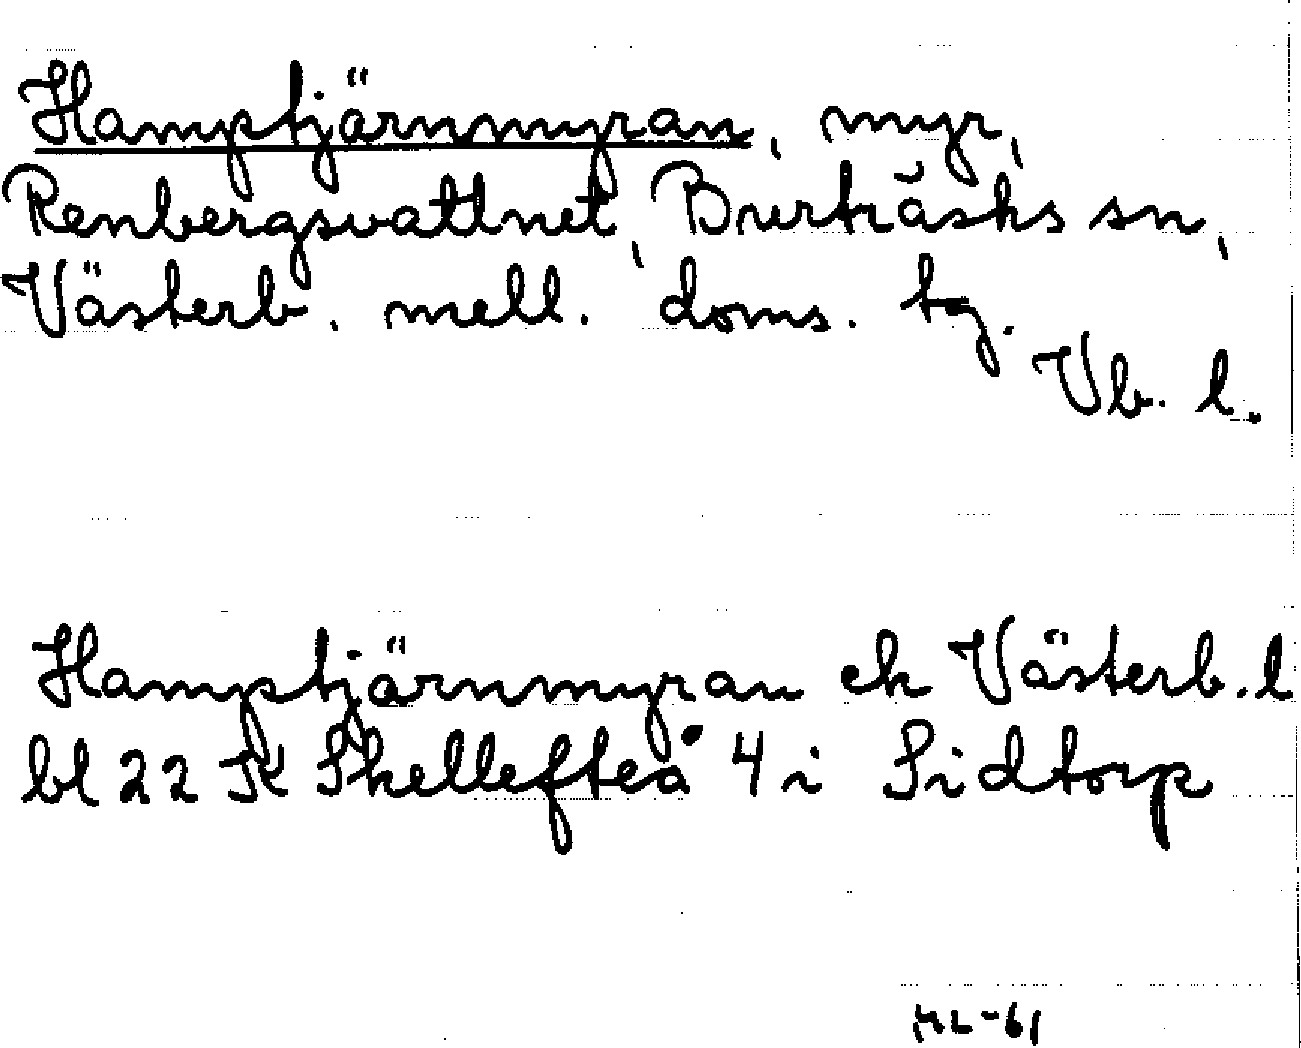 Hamptjärnmyran, myr,
Renbergsvattnet, Burträsks sn,
Västerb. mell. doms. tg.
Vb. l.
Hamptjärnmyran ek Västerb. l
bl 22 SK Skellefteå 4 i Sidtorp
HL-61